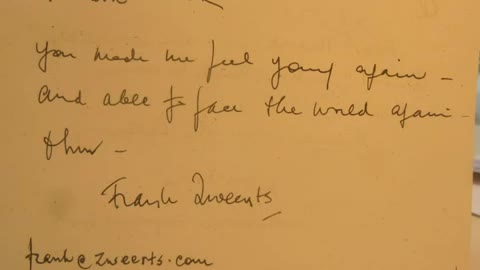 You made me feel young again -
And able to face the world again -
Frank Zweerts
frank@zweerts.com